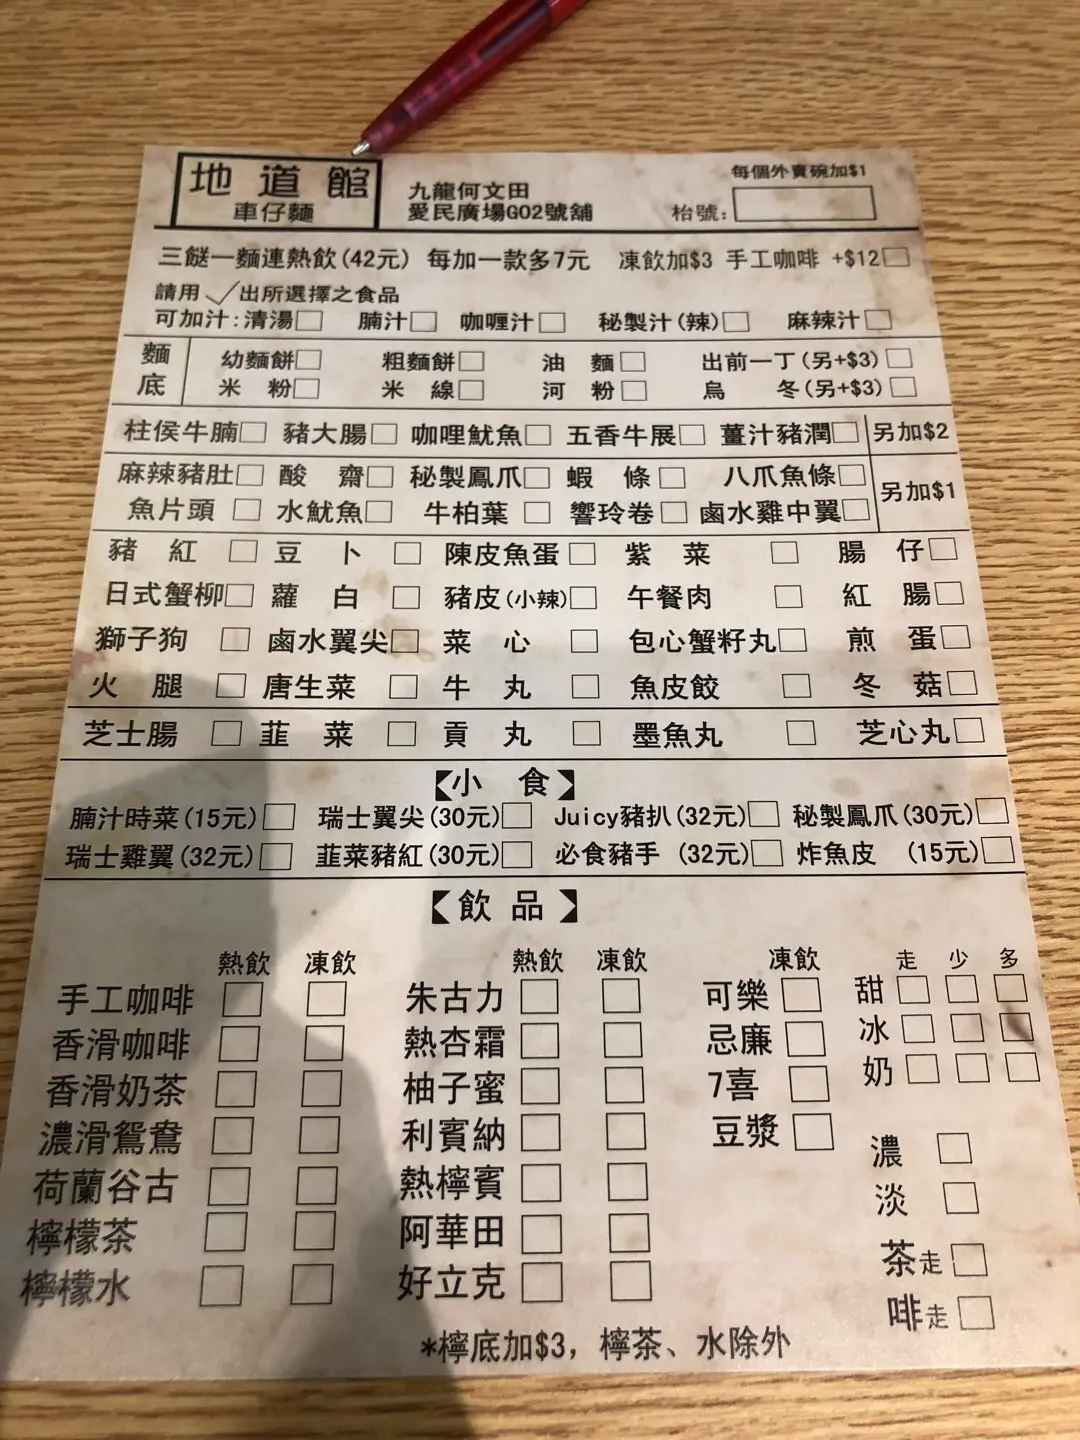 地道館
車仔麵
九龍何文田
愛民廣場G02號舖
每個外賣碗加$1
枱號:
三餸一麵連熱飲(42元) 每加一款多7元 凍飲加$3 手工咖啡 +$12□
請用✓出所選擇之食品
可加汁:清湯□ 腩汁□ 咖喱汁□ 秘製汁(辣)□ 麻辣汁□
麵底
幼麵餅□ 粗麵餅□ 油麵□ 出前一丁(另+$3)□
米粉□ 米線□ 河粉□ 烏冬(另+$3)□
柱侯牛腩□ 豬大腸□ 咖哩魷魚□ 五香牛展□ 薑汁豬潤□ 另加$2
麻辣豬肚□ 酸齋□ 秘製鳳爪□ 蝦條□ 八爪魚條□ 另加$1
魚片頭□ 水魷魚□ 牛柏葉□ 響玲卷□ 鹵水雞中翼□
豬紅□ 豆卜□ 陳皮魚蛋□ 紫菜□ 腸仔□
日式蟹柳□ 蘿白□ 豬皮(小辣)□ 午餐肉□ 紅腸□
獅子狗□ 鹵水翼尖□ 菜心□ 包心蟹籽丸□ 煎蛋□
火腿□ 唐生菜□ 牛丸□ 魚皮餃□ 冬菇□
芝士腸□ 韮菜□ 貢丸□ 墨魚丸□ 芝心丸□
【小食】
腩汁時菜(15元)□ 瑞士翼尖(30元)□ Juicy豬扒(32元)□ 秘製鳳爪(30元)□
瑞士雞翼(32元)□ 韮菜豬紅(30元)□ 必食豬手(32元)□ 炸魚皮(15元)□
【飲品】
熱飲 凍飲 熱飲 凍飲 凍飲 走 少 多
手工咖啡□□ 朱古力□□ 可樂□ 甜□□□
香滑咖啡□□ 熱杏霜□□ 忌廉□ 冰□□□
香滑奶茶□□ 柚子蜜□□ 7喜□ 奶□□□
濃滑鴛鴦□□ 利賓納□□ 豆漿□ 濃□
荷蘭谷古□□ 熱檸賓□□ 淡□
檸檬茶□□ 阿華田□□ 茶走□
檸檬水□□ 好立克□□ 啡走□
*檸底加$3, 檸茶、水除外